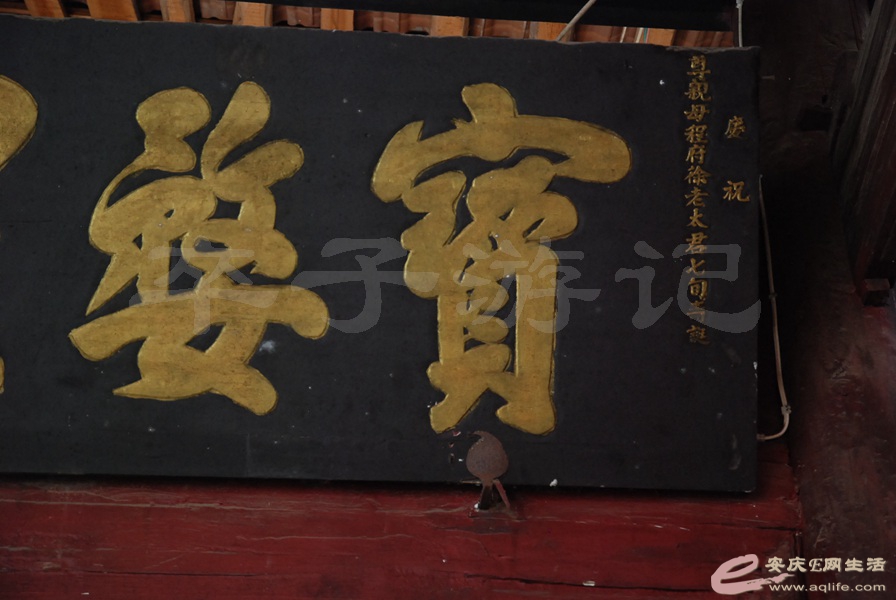 慶祝
尊親母程府徐老太君七旬壽誕
寶婺
辛子游记
安庆E网生活
www.aqlife.com